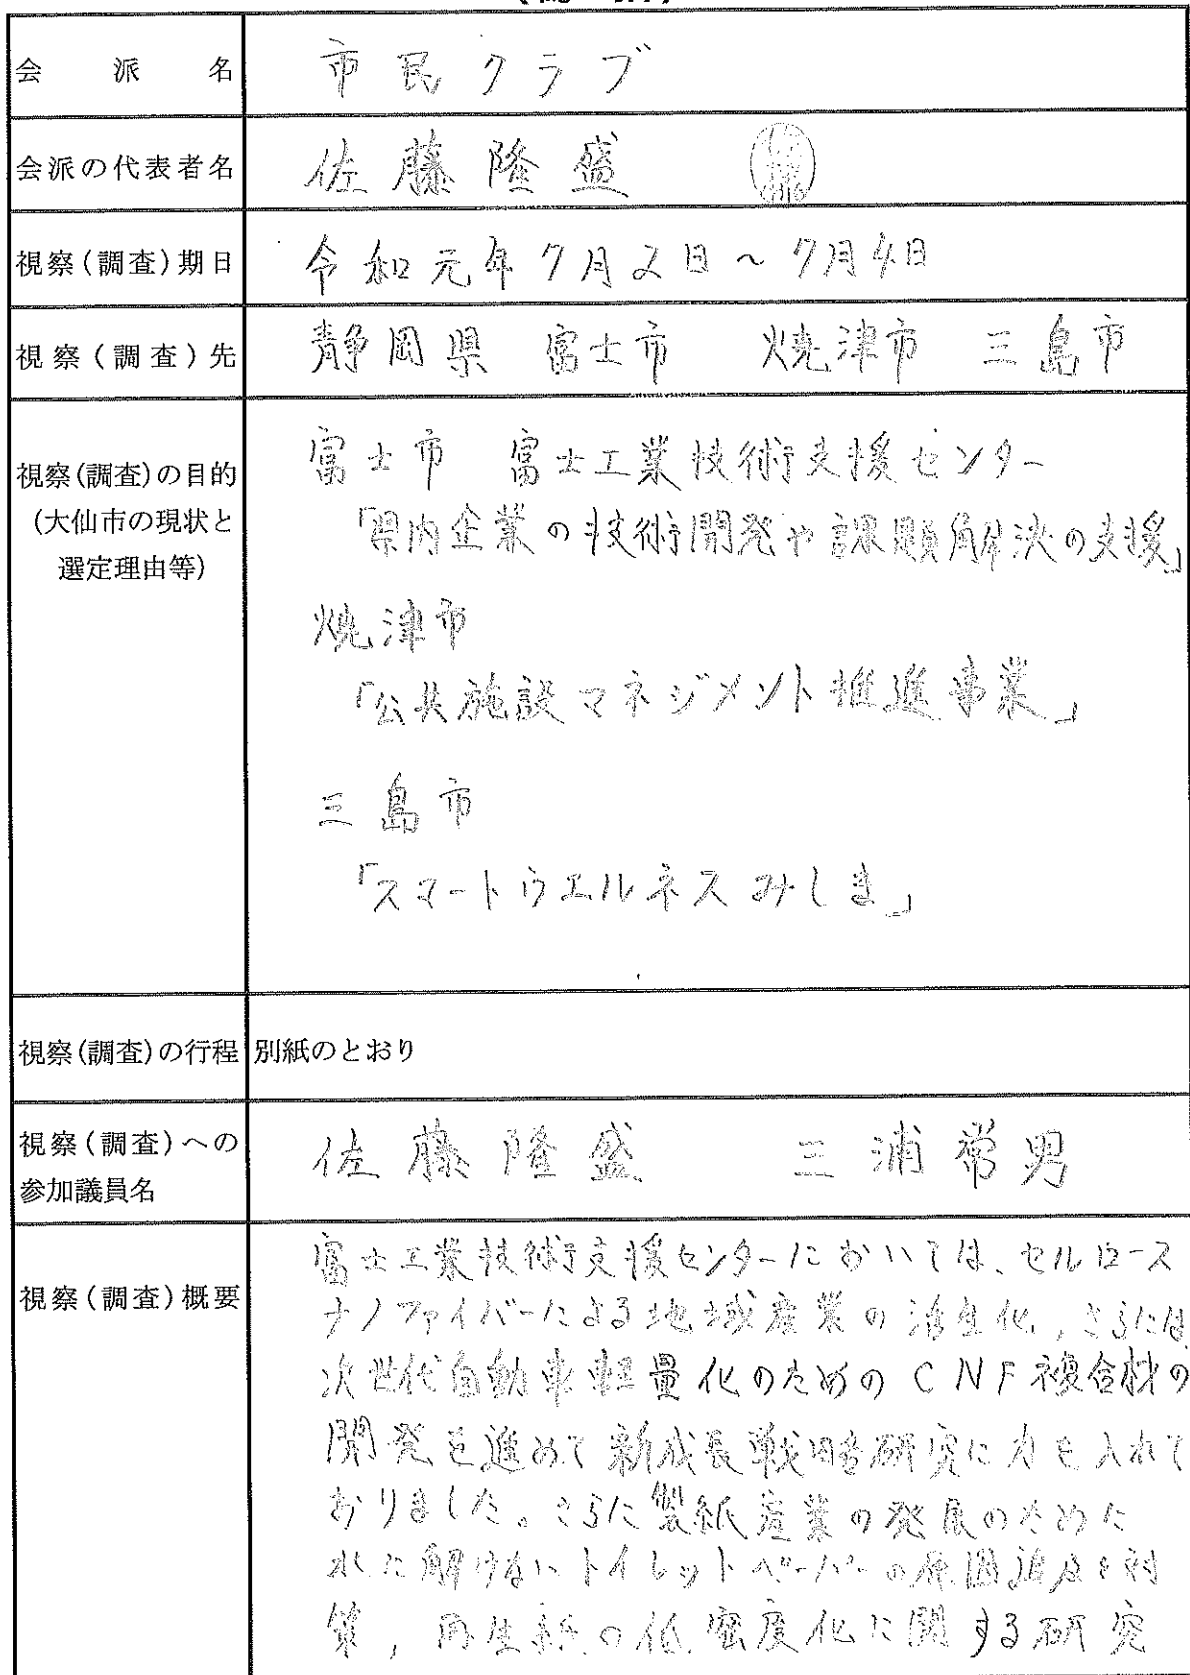 会派名 市民クラブ
会派の代表者名 佐藤隆盛
視察(調査)期日 令和元年7月2日～7月4日
視察(調査)先 静岡県 富士市 焼津市 三島市
視察(調査)の目的
(大仙市の現状と
選定理由等)
富士市 富士工業技術支援センター
「県内企業の技術開発や課題解決の支援」
焼津市
「公共施設マネジメント推進事業」
三島市
「スマートウエルネスみしま」
視察(調査)の行程 別紙のとおり
視察(調査)への
参加議員名
佐藤隆盛 三浦常男
視察(調査)概要
富士工業技術支援センターにおいては、セルロース
ナノファイバーによる地域産業の活性化,さらには
次世代自動車軽量化のためのCNF複合材の
開発を進めて新成長戦略研究に力を入れて
おりました。さらに製紙産業の発展のために
水に解けないトイレットペーパーの原因追及と対
策,再生紙の低密度化に関する研究